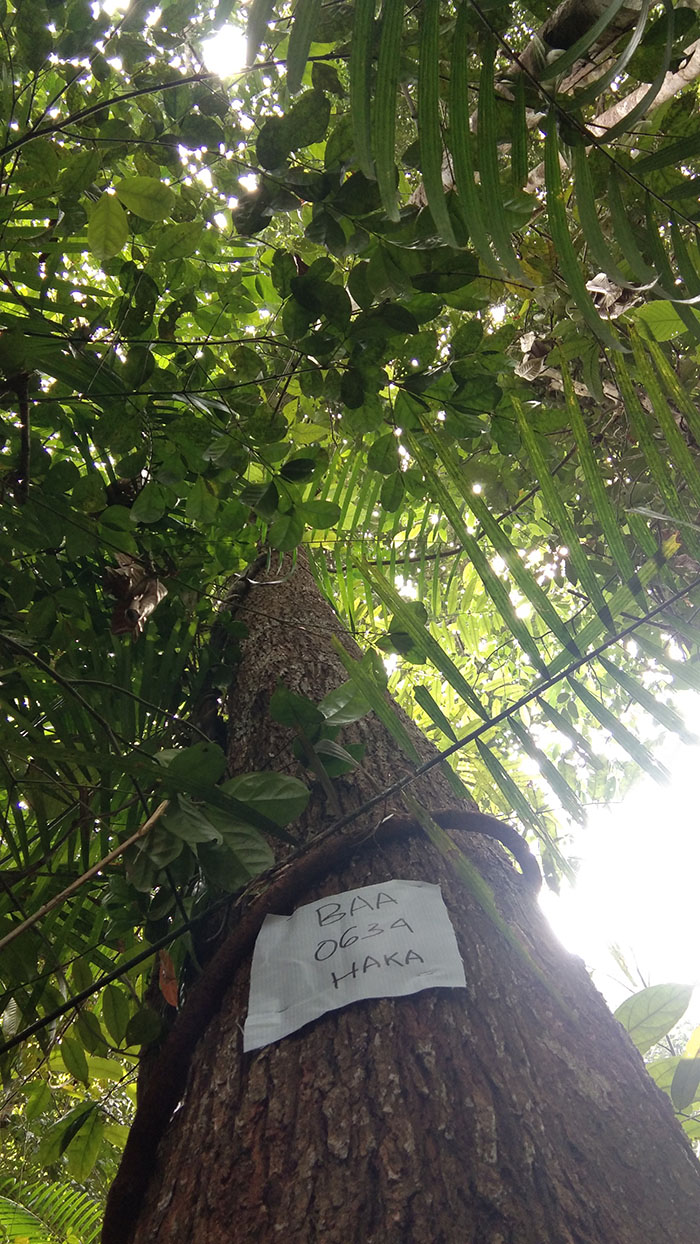 BAA
0634
HAKA